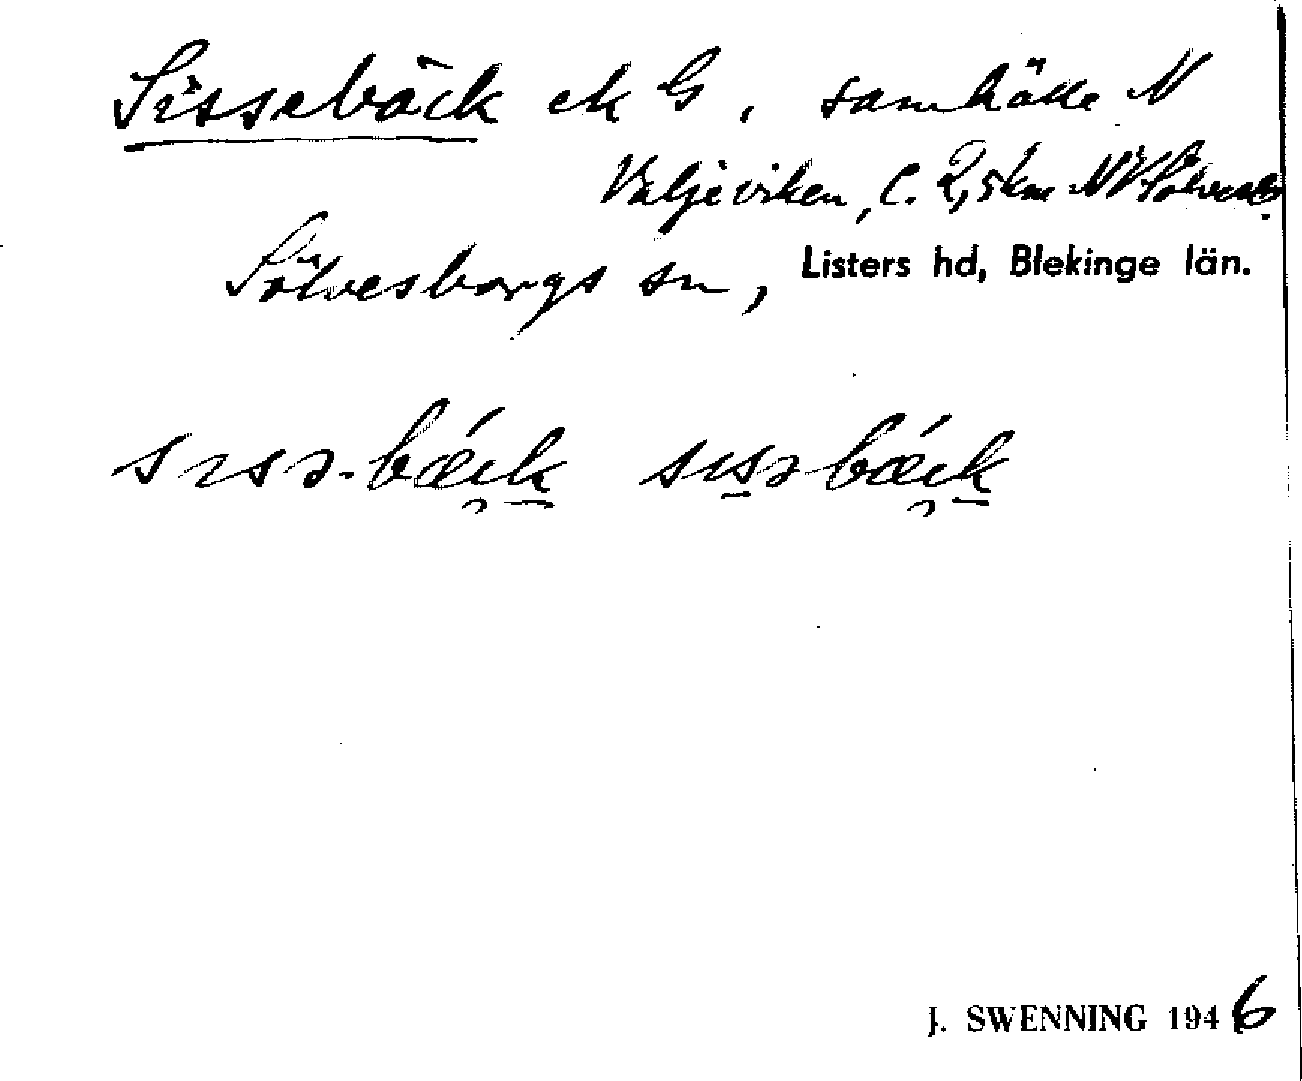 Sissebäck ek G, samhälle N
Valjeviken, c. 2,5 km NV Sölvesb.
Sölvesborgs sn, Listers hd, Blekinge län.
sɪsə-bǽck sɪsəbǽck
J. SWENNING 1946